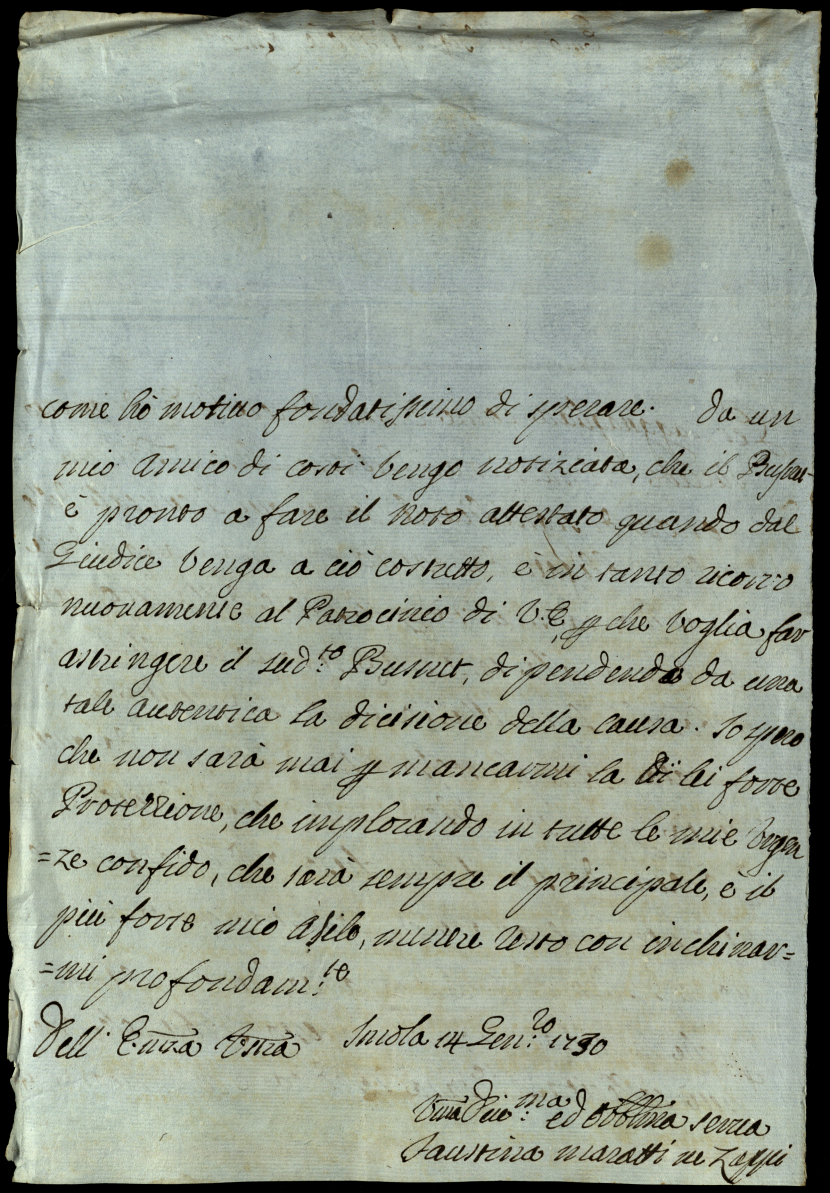 come hò motiuo fondatissimo di sperare. da un
mio Amico di costì Vengo notiziata, che il
è pronto a fare il noto attestato quando dal
Giudice Venga a ciò costretto, è in tanto ricorro
nuouamente al Patrocinio di V.E. p che Voglia far
astringere il sud.to Busnet, dipendendo da una
tale autentica la dicisione della causa. Io spero
che non sarà mai p mancarmi la di lei forte
Protezzione, che implorando in tutte le mie Vrgen
=ze confido, che sarà sempre il principale, è il
più forte mio Asilo, mentre resto con inchinar=
=mi profondam:te
Dell' E.nza Vstra Imola 14 Gen:ro 1730
Vma Diu:ma ed Obblma serua
Faustina Maratti ne Zappi